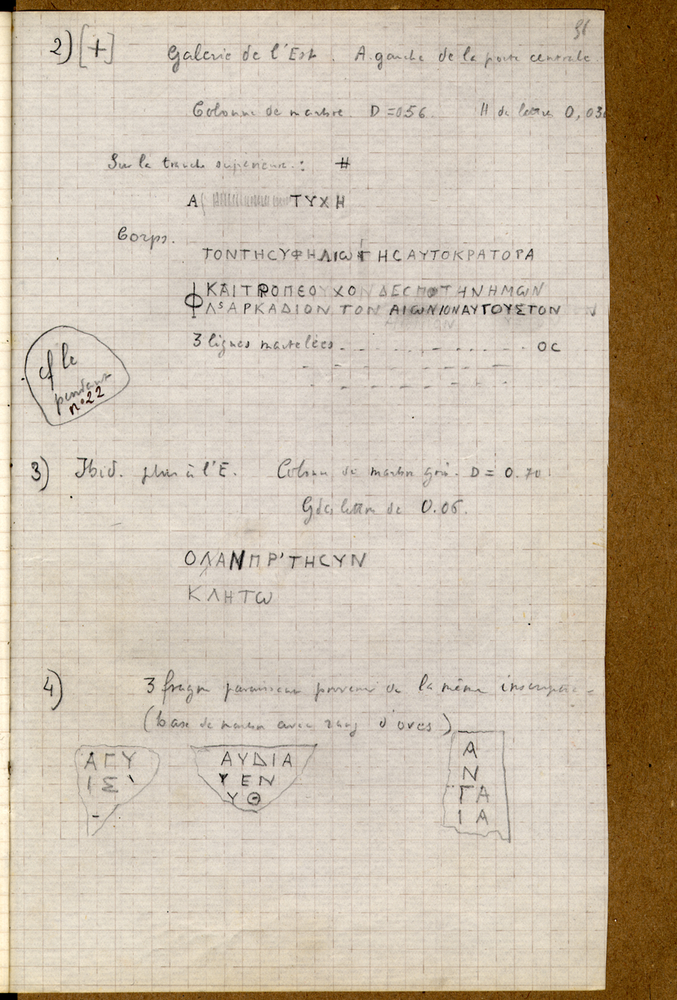 96
2) [+] Galerie de l'Est. A gauche de la porte centrale
Colonne de marbre. D = 056. H de lettres 0,03
Sur la tranche supérieure : #
Α ΤΥΧΗ
Corps.
ΤΟΝΤΗCΥΦΗΛΙѠΤΗCΑΥΤΟΚΡΑΤΟΡΑ
ΚΑΙΤΡΟΠΕΟΥΧΟΝΔΕCΠΟΤΗΝΗΜѠΝ
Φλ ς ΑΡΚΑΔΙΟΝ ΤΟΝ ΑΙѠΝΙΟΝΑΥΓΟΥΣΤΟΝ
3 lignes martelées - - - - - - - - ΟC
cf le
pendant
n° 22
3) Ibid. plus à l'E. Colonne de marbre gris. D = 0.70
Gdes lettres de 0.06.
ΟΛΑΝΠΡ'ΤΗCΥΝ
ΚΛΗΤѠ
4) 3 fragm paraissant provenir de la même inscription =
(base de marbre avec rang d'oves)
ΑΓΥ
ΙΣ
ΑΥΔΙΑ
ΥΕΝ
ΥΘ
Α
Ν
ΓΑ
ΙΑ